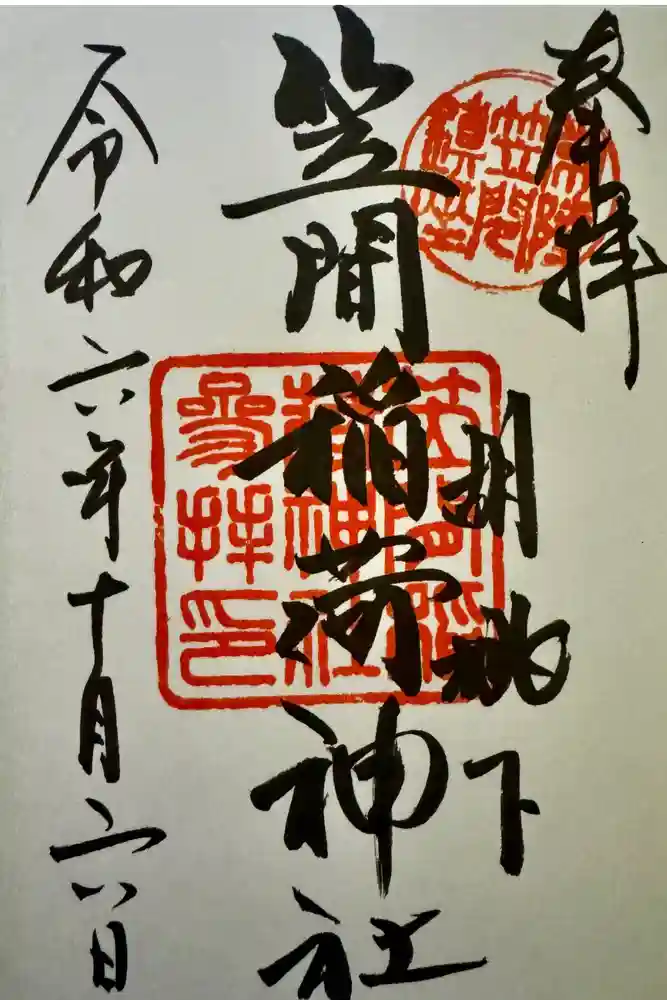 奉拝
常陸
笠間
鎮座
胡桃下
笠間稲荷神社
笠間稲
荷神社
参拝印
令和六年十月六日